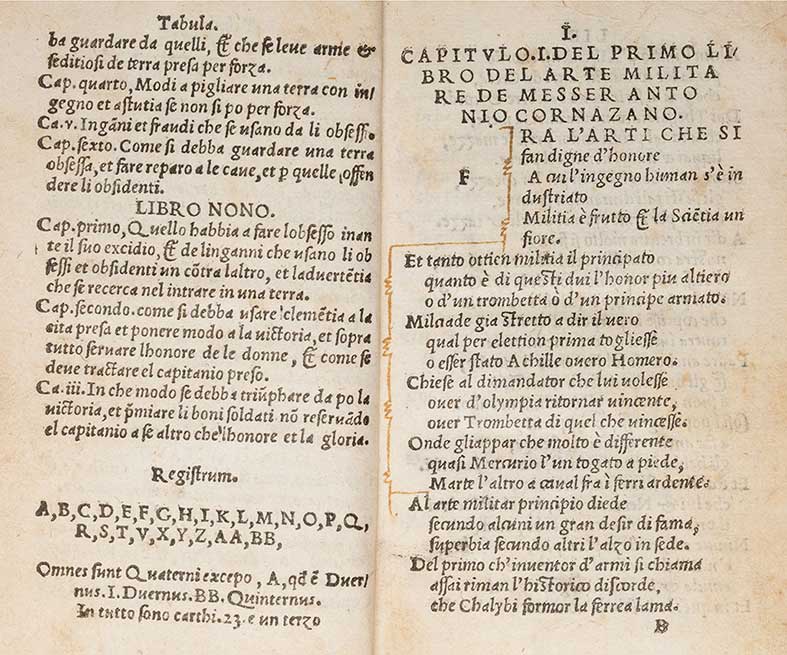 Tabula.
ba guardare da quelli, & che se leue arme &
seditiosi de terra presa per forza.
Cap. quarto, Modi a pigliare una terra con in/
gegno et astutia se non si po per forza.
Ca. v. Ingāni et fraudi che se usano da li obsessi.
Cap. sexto. Come si debba guardare una terra
obsessa, et fare reparo a le caue, et p quelle, offen
dere li obsidenti.
LIBRO NONO.
Cap. primo, Quello habbia a fare lobsesso inan
te il suo excidio, & de linganni che usano li ob
sessi et obsidenti un cōtra laltro, et laduertētia
che se recerca nel intrare in una terra.
Cap. secondo. come si debba usare clemētia a la
cita presa et ponere modo a la uictoria, et sopra
tutto seruare lhonore de le donne, & come se
deue tractare el capitanio preso.
Ca. iii. In che modo se debba triūphare da po la
uictoria, et p̄miare li boni soldati nō reseruādo
el capitanio a se altro che lhonore et la gloria.
Registrum.
A, B, C, D, E, F, G, H, I, K, L, M, N, O, P, Q,
R, S, T, V, X, Y, Z, AA, BB,
Omnes sunt Quaterni excepo, A, qđ ē Duer/
nus. I. Duernus. BB. Quinternus.
In tutto sono carthi. 23. e un terzo
I.
CAPITVLO. I. DEL PRIMO LI/
BRO DEL ARTE MILITA
RE DE MESSER ANTO
NIO CORNAZANO.
F
RA L'ARTI CHE SI
fan digne d'honore
A cui l'ingegno human s'è in
dustriato
Militia è frutto & la Sciētia un
fiore.
Et tanto ottien militia il principato
quanto è di questi dui l'honor piu altiero
o d'un trombetta ò d'un principe armato.
Milciade gia stretto a dir il uero
qual per elettion prima togliesse
o esser stato Achille ouero Homero.
Chiese al dimandator che lui uolesse
ouer d'olympia ritornar uincente,
ouer Trombetta di quel che uincesse.
Onde gliappar che molto è differente
quasi Mercurio l'un togato a piede,
Marte l'altro a caual fra i ferri ardente.
Al arte militar principio diede
secundo alcuni un gran desir di fama,
superbia secundo altri l'alzo in sede.
Del primo ch'inuentor d'armi si chiama
assai riman l'historico discorde,
che Chalybi formor la ferrea lama.
B